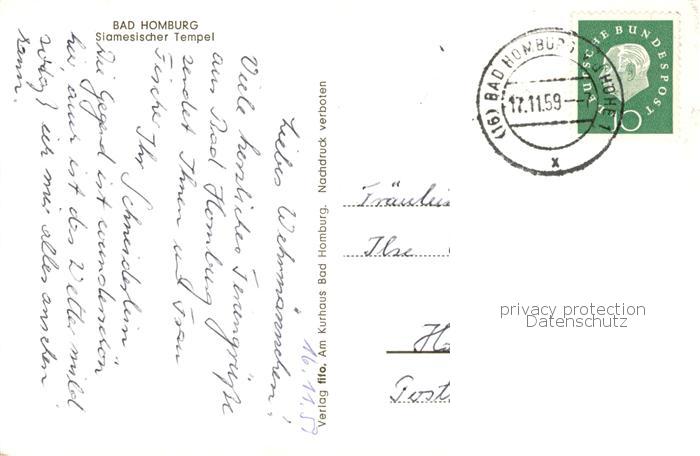 BAD HOMBURG
Siamesischer Tempel
Liebes Wehrmännchen!
Viele herzliche Feriengrüße
aus Bad Homburg
sendet Ihnen und Frau
Tische Ihr Schneiderlein
Die Gegend ist wunderschön
hier, auch ist das Wetter mild
ich mir alles ansehen
kann.
16.11.59
Verlag fifo. Am Kurhaus Bad Homburg. Nachdruck verboten
(16) BAD HOMBURG HÖHE 1
17.11.59
x
DEUTSCHE BUNDESPOST
10
Fräulein
Ilse
Post
privacy protection
Datenschutz